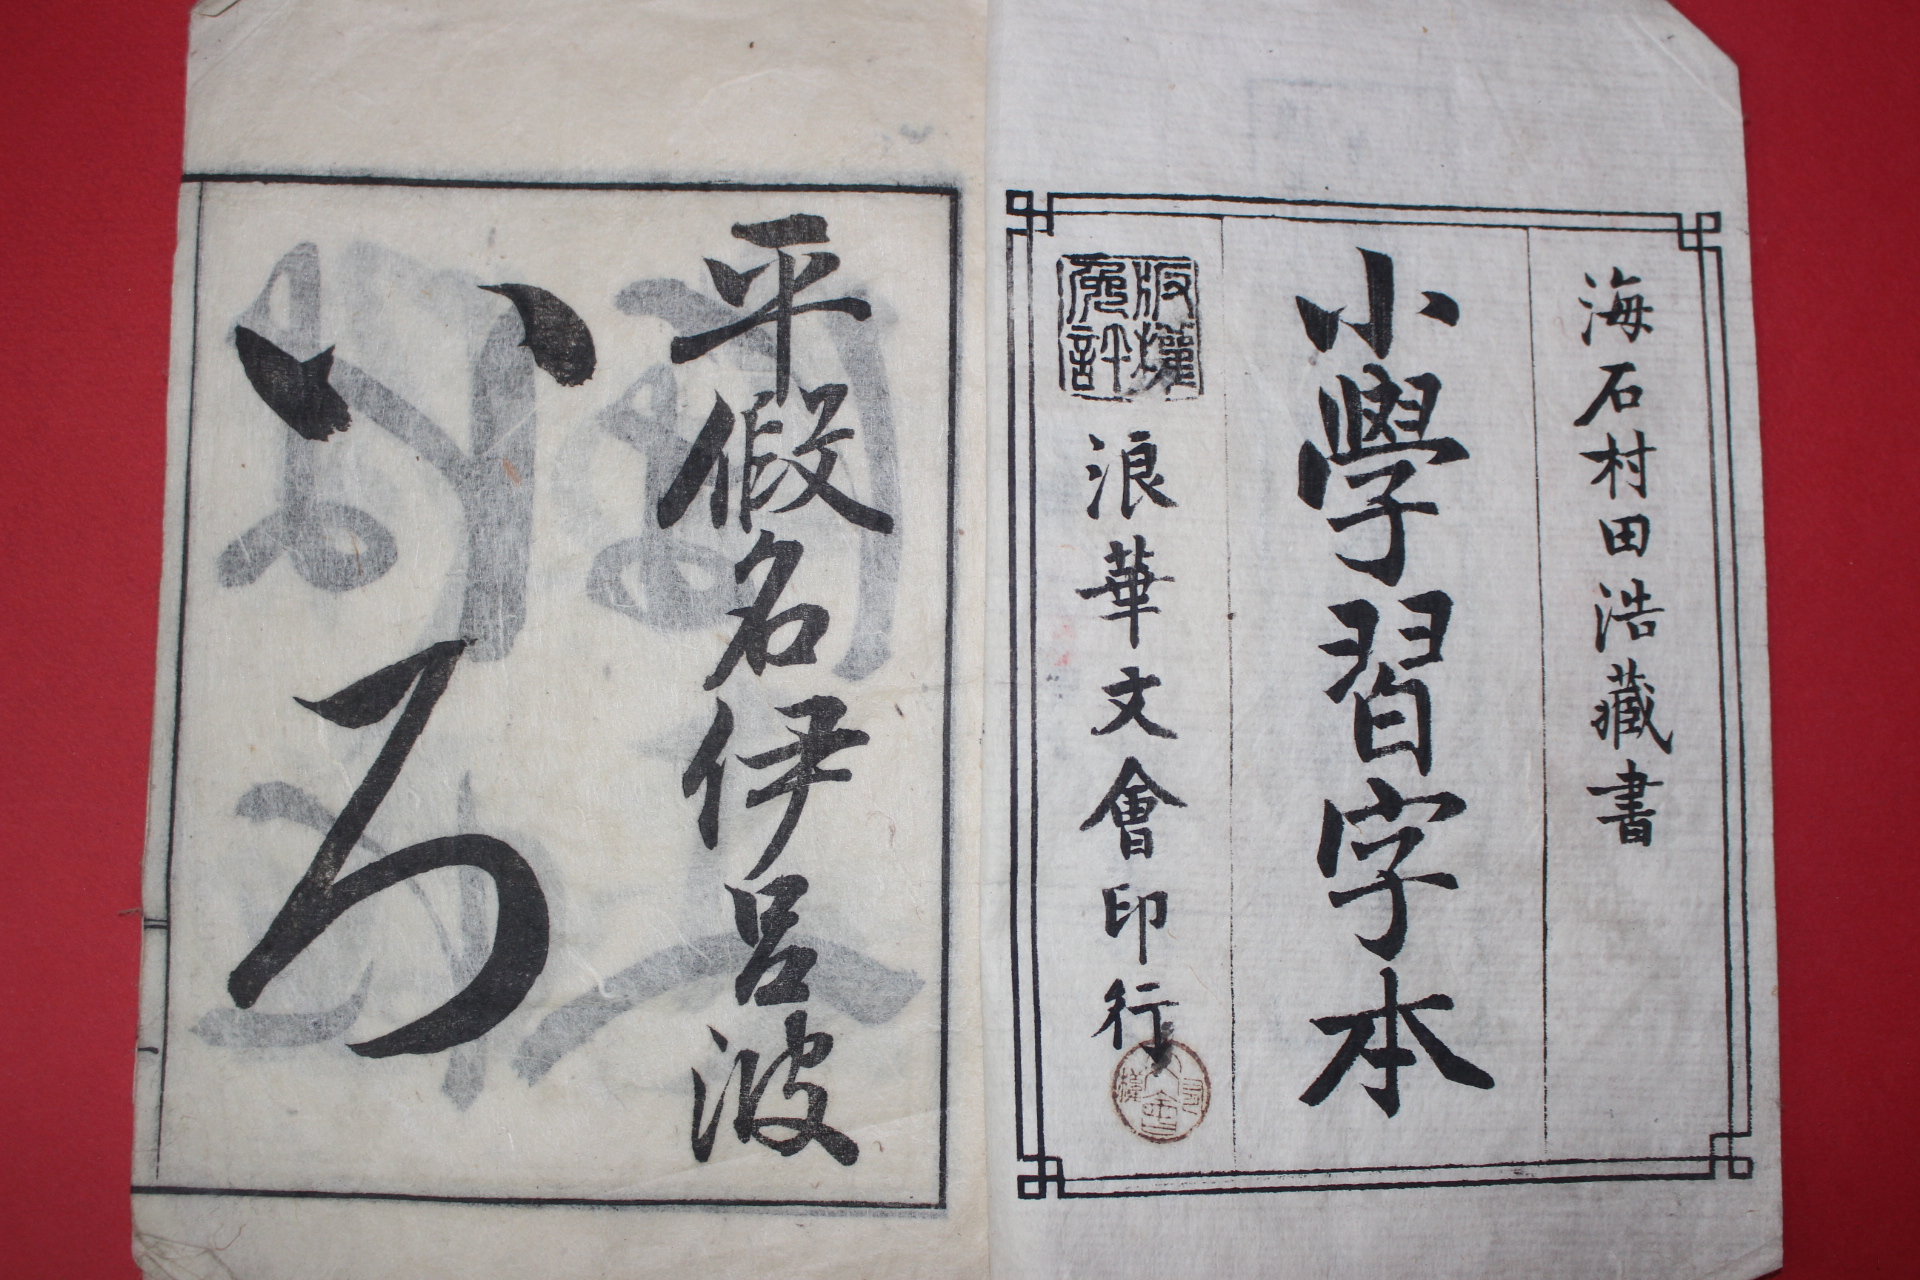 海石村田浩藏書
小學習字本
版權免許
浪華文會印行
平假名伊呂波
いろ